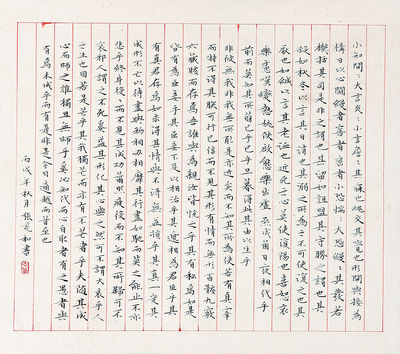 小知閒〻大言炎〻小言詹〻其寐也魂交其覺也形開與接為
構日以心鬭縵者窖者密者小恐惴〻大恐縵〻其發若
機栝其司是非之謂也其留如詛盟其守勝之謂也其
殺如秋冬以言其日消也其溺之所為之不可使復之也其
厭也如緘以言其老洫也近死之心莫使復陽也喜怒哀
樂慮嘆變慹姚佚啟態樂出虛蒸成菌日夜相代乎
前而莫知其所萌已乎已乎旦暮得此其由以生乎
非彼無我非我無所取是亦近矣而不知其所為使若有真宰
而特不得其朕可行已信而不見其形有情而無形百骸九竅
六藏賅而存焉吾誰與為親汝皆悅之乎其有私焉如是
皆有為臣妾乎其臣妾不足以相治乎其遞相為君臣乎其
有真君存焉如求得其情與不得無益損乎其真一受其
成形不亡以待盡與物相刃相靡其行盡如馳而莫之能止不亦
悲乎終身役〻而不見其成功苶然疲役而不知其所歸可不
哀邪人謂之不死奚益其形化其心與之然可不謂大哀乎人
之生也固若是芒乎其我獨芒而亦有不芒者乎夫隨其成
心而師之誰獨且無師乎奚必知代而心自取者有之愚者與
有焉未成乎而有是非是今日適越而昔至也
丙戌年秋月張友和書